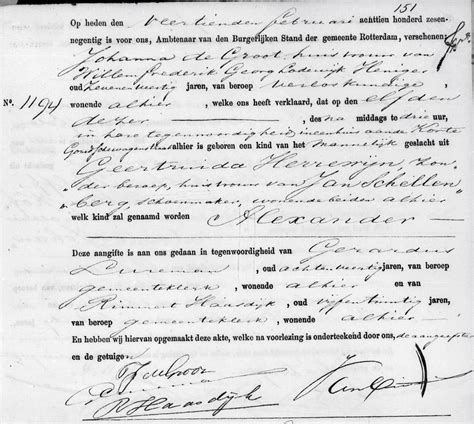 151
Op heden den veertienden februari achttien honderd zesen-
negentig is voor ons, Ambtenaar van den Burgerlijken Stand der gemeente Rotterdam, verschenen:
Johanna de Groot, huisvrouw van
Willem Frederik Georg Lodewijk Heniger
oud zevenenveertig jaren, van beroep verloskundige,
No. 1194 wonende alhier, welke ons heeft verklaard, dat op den elfden
dezer des na middags te drie uur,
in hare tegenwoordigheid in een huis aan de Korte
alhier is geboren een kind van het Mannelijk geslacht uit
Geertruida Herrewijn, zon-
der beroep, huisvrouw van Jan Schellen-
berg, schoenmaker, wonende beiden alhier
welk kind zal genaamd worden Alexander
Deze aangifte is aan ons gedaan in tegenwoordigheid van Gerardus
oud achtenveertig jaren, van beroep
gemeenteklerk, wonende alhier en van
Haasdijk, oud vijfentwintig jaren,
van beroep gemeenteklerk, wonende alhier
En hebben wij hiervan opgemaakt deze akte, welke na voorlezing is onderteekend door ons, de aangeefster
en de getuigen.
J de Groot
Haasdijk